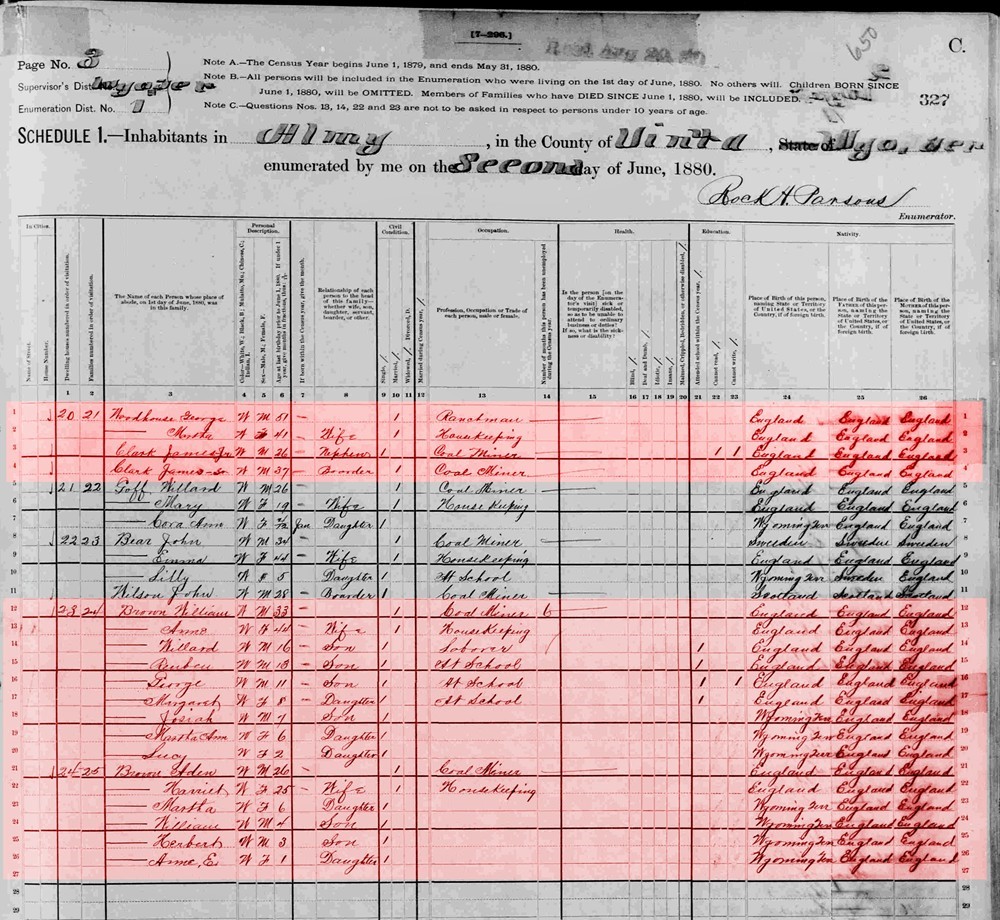 [7-296.]
Recd Aug 20, 80
650
C.
Page No. 3
Note A.—The Census Year begins June 1, 1879, and ends May 31, 1880.
Supervisor's Dist.
Note B.—All persons will be included in the Enumeration who were living on the 1st day of June, 1880. No others will. Children BORN SINCE
June 1, 1880, will be OMITTED. Members of Families who have DIED SINCE June 1, 1880, will be INCLUDED.
327
Enumeration Dist. No. 1
Note C.—Questions Nos. 13, 14, 22 and 23 are not to be asked in respect to persons under 10 years of age.
SCHEDULE 1.—Inhabitants in Almy, in the County of Uinta, State of Wyo, Ter
enumerated by me on the Second day of June, 1880.
Rock H. Parsons
Enumerator.
In Cities. Personal Description. Civil Condition. Occupation. Health. Education. Nativity.
Name of Street. House Number. Dwelling houses numbered in order of visitation. Families numbered in order of visitation.
The Name of each Person whose place of abode, on 1st day of June, 1880, was in this family.
Color—White, W.; Black, B.; Mulatto, Mu.; Chinese, C.; Indian, I.
Sex—Male, M.; Female, F.
Age at last birthday prior to June 1, 1880. If under 1 year, give months in fractions, thus: 3/12
If born within the Census year, give the month.
Relationship of each person to the head of this family—whether wife, son, daughter, servant, boarder, or other.
Single, / Married, / Widowed, / Divorced, D. Married during Census year, /
Profession, Occupation or Trade of each person, male or female.
Number of months this person has been unemployed during the Census year.
Is the person [on the day of the Enumerator's visit] sick or temporarily disabled, so as to be unable to attend to ordinary business or duties? If so, what is the sickness or disability?
Blind, / Deaf and Dumb, / Idiotic, / Insane, / Maimed, Crippled, Bedridden, or otherwise disabled, /
Attended school within the Census year, / Cannot read, / Cannot write, /
Place of Birth of this person, naming State or Territory of United States, or the Country, if of foreign birth.
Place of Birth of the FATHER of this person, naming the State or Territory of United States, or the Country, if of foreign birth.
Place of Birth of the MOTHER of this person, naming the State or Territory of United States, or the Country, if of foreign birth.
1 2 3 4 5 6 7 8 9 10 11 12 13 14 15 16 17 18 19 20 21 22 23 24 25 26
1 20 21 Woodhouse George W M 51 1 Ranchman England England England 1
2 Martha W F 41 — Wife 1 Housekeeping England England England 2
3 Clark James Jr W M 26 — Nephew 1 Coal Miner 1 1 England England England 3
4 Clark James Sr W M 37 — Boarder 1 Coal Miner England England England 4
5 21 22 Goff Willard W M 26 1 Coal Miner England England England 5
6 Mary W F 19 — Wife 1 Housekeeping England England England 6
7 Cora Ann W F Jan Daughter 1 Wyoming Ter England England 7
8 22 23 Bear John W M 34 1 Coal Miner Sweeden Sweeden Sweeden 8
9 Emma W F 44 — Wife 1 Housekeeping England England England 9
10 Lilly W F 5 Daughter 1 At School Wyoming Terr Sweeden England 10
11 Wilson John W M 28 — Boarder 1 Coal Miner Scotland Scotland Scotland 11
12 23 24 Brown William W M 33 1 Coal Miner 6 England England England 12
13 Anne W F 44 — Wife 1 Housekeeping England England England 13
14 Willard W M 16 — Son 1 Laborer 1 England England England 14
15 Reuben W M 13 — Son 1 At School 1 England England England 15
16 George W M 11 — Son 1 At School 1 1 England England England 16
17 Margaret W F 8 — Daughter 1 At School 1 England England England 17
18 Josiah W M 7 Son 1 Wyoming Ter England England 18
19 Martha Ann W F 6 Daughter 1 Wyoming Ter England England 19
20 Lucy W F 2 Daughter 1 Wyoming Ter England England 20
21 24 25 Brown Aden W M 26 — 1 Coal Miner England England England 21
22 Harriet W F 25 — Wife 1 Housekeeping England England England 22
23 Martha W F 6 Daughter 1 Wyoming Ter England England 23
24 William W M 4 Son 1 Wyoming Ter England England 24
25 Herbert W M 3 Son 1 Wyoming Ter England England 25
26 Anne, E. W F 1 Daughter 1 Wyoming Ter England England 26
27 27
28 28
29 29